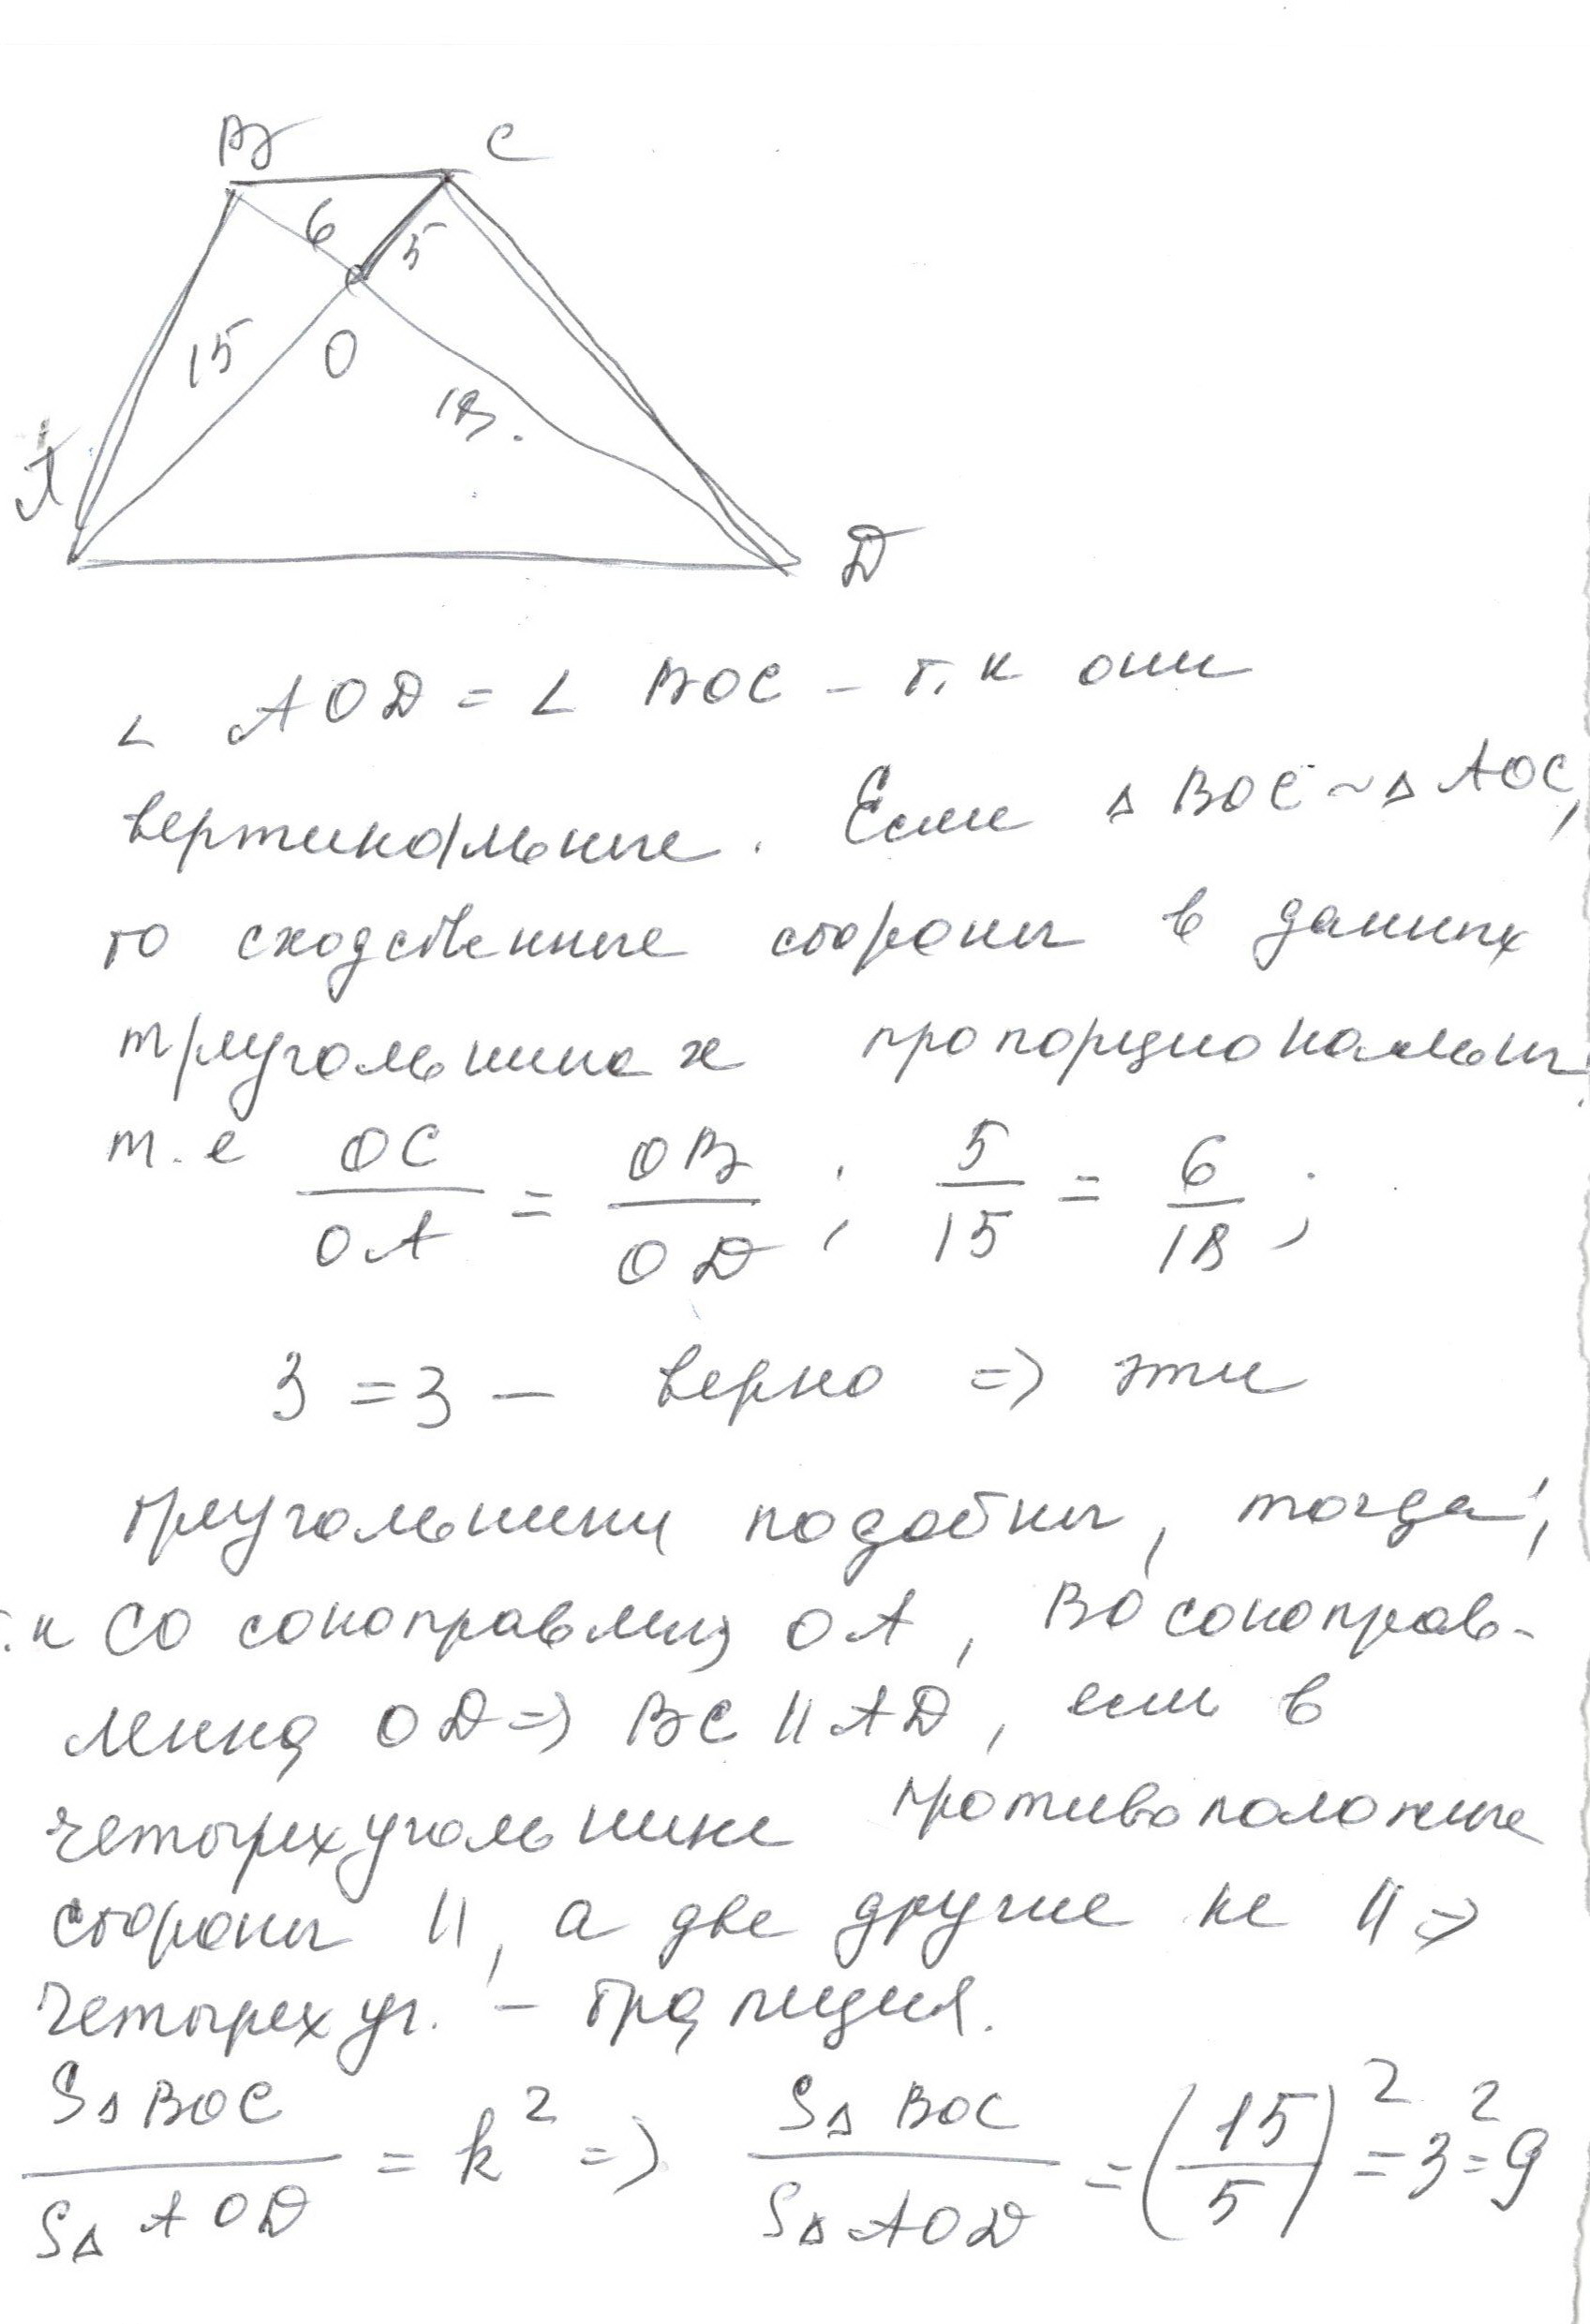 B C
6 5
15 O
18.
A
D
∠ AOD = ∠ BOC – т.к они
вертикальные. Если △ BOC ~ △ AOC,
то сходственные стороны в данных
треугольниках пропорциональны,
т.е OC/OA = OB/OD ; 5/15 = 6/18 ;
3 = 3 – верно => эти
треугольники подобны, тогда,
т.к CO сонаправлен OA, BO сонаправ-
лена OD => BC || AD, если в
четырехугольнике противоположные
стороны ||, а две другие не || =>
четырехуг. – трапеция.
S△BOC/S△AOD = k² => S△BOC/S△AOD = (15/5)² = 3² = 9